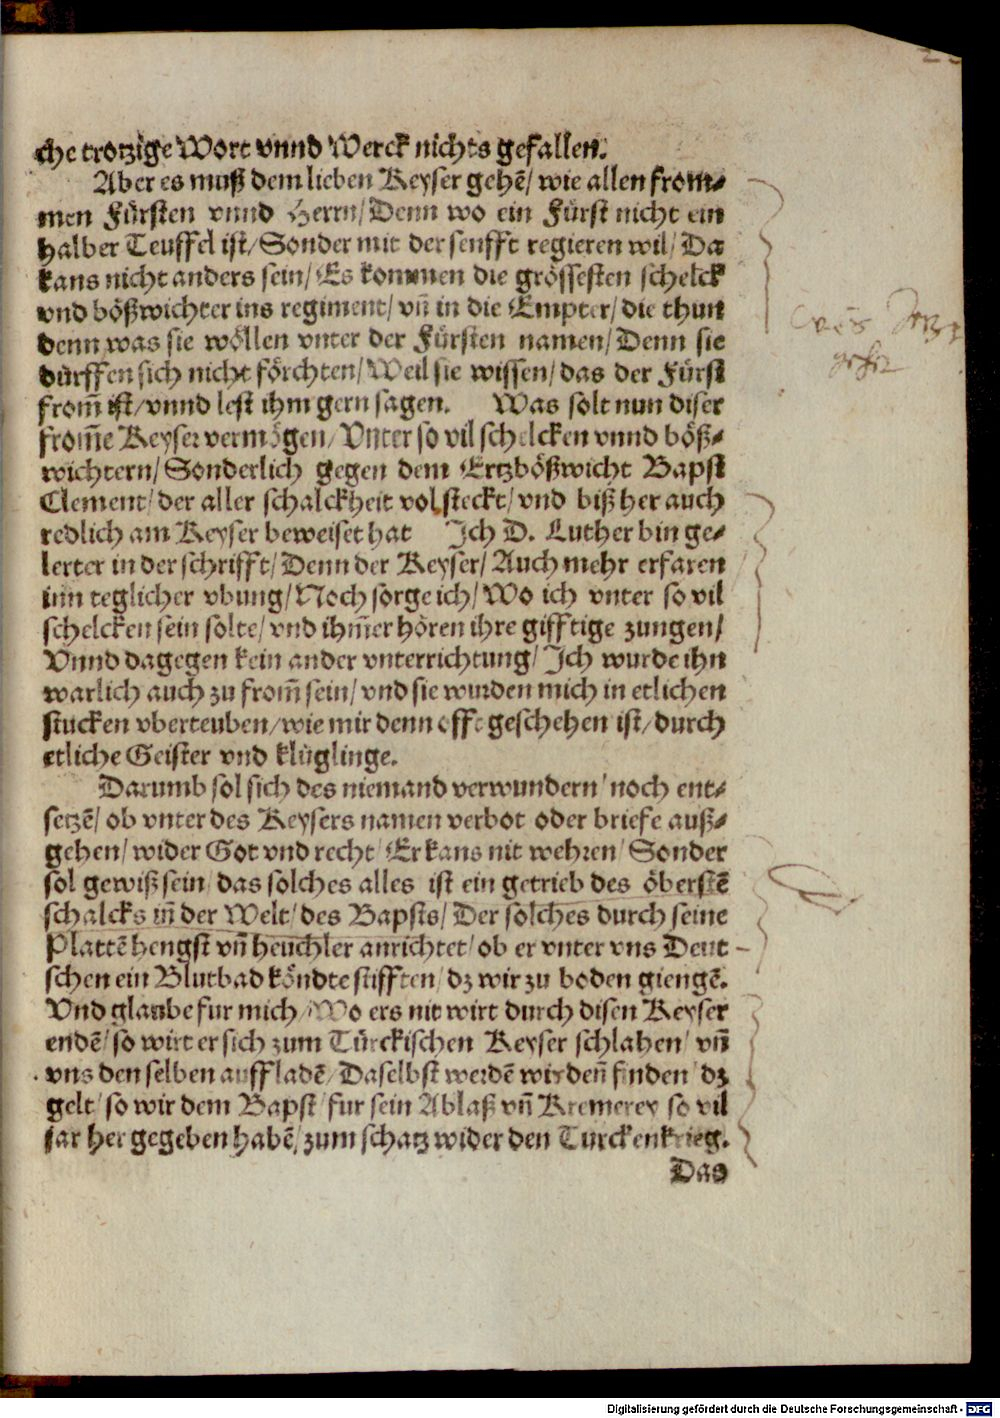 che trotzige Wort vnnd Werck nichts gefallen.
Aber es muß dem lieben Keyser gehē/ wie allen from⸗
men Fürsten vnnd Herrn/ Denn wo ein Fürst nicht ein
halber Teuffel ist/ Sonder mit der senfft regieren wil/ Da
kans nicht anders sein/ Es kommen die grössesten schelck
vnd bößwichter ins regiment/ vn̄ in die Empter/ die thun
denn was sie wöllen vnter der Fürsten namen/ Denn sie
dürffen sich nicht förchten/ Weil sie wissen/ das der Fürst
from̄ ist/ vnnd lest ihm gern sagen. Was solt nun diser
from̄e Keyser vermögen/ Vnter so vil schelcken vnnd böß⸗
wichtern/ Sonderlich gegen dem Ertzbößwicht Bapst
Clement/ der aller schalckheit vol steckt/ vnd biß her auch
redlich am Keyser beweiset hat Ich D. Luther bin ge⸗
lerter in der schrifft/ Denn der Keyser/ Auch mehr erfaren
inn teglicher vbung/ Noch sorge ich/ Wo ich vnter so vil
schelcken sein solte/ vnd ihm̄er hören ihre gifftige zungen/
Vnnd dagegen kein ander vnterrichtung/ Ich wurde ihn
warlich auch zu from̄ sein/ vnd sie wurden mich in etlichen
stucken vberteuben/ wie mir denn offt geschehen ist/ durch
etliche Geister vnd klüglinge.
Darumb sol sich des niemand verwundern/ noch ent⸗
setzē/ ob vnter des Keysers namen verbot oder briefe auß⸗
gehen/ wider Got vnd recht/ Er kans nit wehren/ Sonder
sol gewiß sein/ das solches alles ist ein getrieb des öberstē
schalcks in̄ der Welt/ des Bapsts/ Der solches durch seine
Plattē hengst vn̄ heuchler anrichtet/ ob er vnter vns Deut
schen ein Blutbad köndte stifften/ dz wir zu boden giengē.
Vnd glaube fur mich/ Wo ers nit wirt durch disen Keyser
endē/ so wirt er sich zum Türckischen Keyser schlahen/ vn̄
vns den selben auffladē/ Daselbst werdē wir den̄ finden/ dz
gelt/ so wir dem Bapst/ fur sein Ablaß vn̄ Kremerey so vil
jar her gegeben habē/ zum schatz wider den Turckenkrieg.
Das
Digitalisierung gefördert durch die Deutsche Forschungsgemeinschaft - DFG